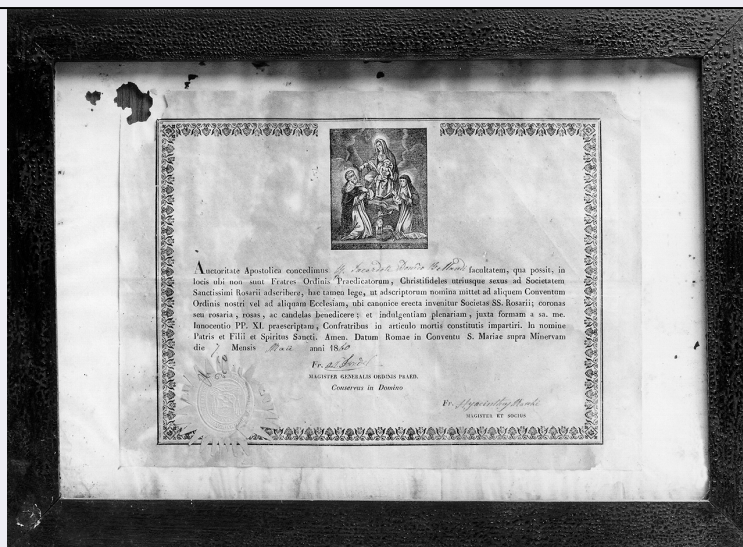 Auctoritate Apostolica concedimus facultatem, qua possit, in
locis ubi non sunt Fratres Ordinis Praedicatorum, Christifideles utriusque sexus ad Societatem
Sanctissimi Rosarii adscribere, hac tamen lege, ut adscriptorum nomina mittet ad aliquem Conventum
Ordinis nostri vel ad aliquam Ecclesiam, ubi canonice erecta invenitur Societas SS. Rosarii; coronas
seu rosaria, rosas, ac candelas benedicere; et indulgentiam plenariam, juxta formam a sa. me.
Innocentio PP. XI. praescriptam, Confratribus in articulo mortis constitutis impartiri. In nomine
Patris et Filii et Spiritus Sancti. Amen. Datum Romae in Conventu S. Mariae supra Minervam
die 7 Mensis anni 1860
Fr.
MAGISTER GENERALIS ORDINIS PRAED.
Conservus in Domino
Fr.
MAGISTER ET SOCIUS